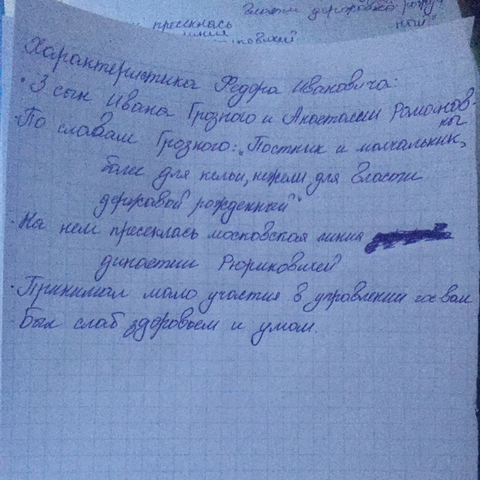 власти державной
пресеклась
линия
ной"
Характеристика Федора Ивановича:
· 3 сын Ивана Грозного и Анастасии Романов-
ны
· По словам Грозного: „Постник и молчальник,
боле для кельи, нежели для власти
державой рожденный"
· На нем пресеклась московская линия
династии Рюриковичей
· Принимал мало участия в управлении гос-вом
· Был слаб здоровьем и умом.